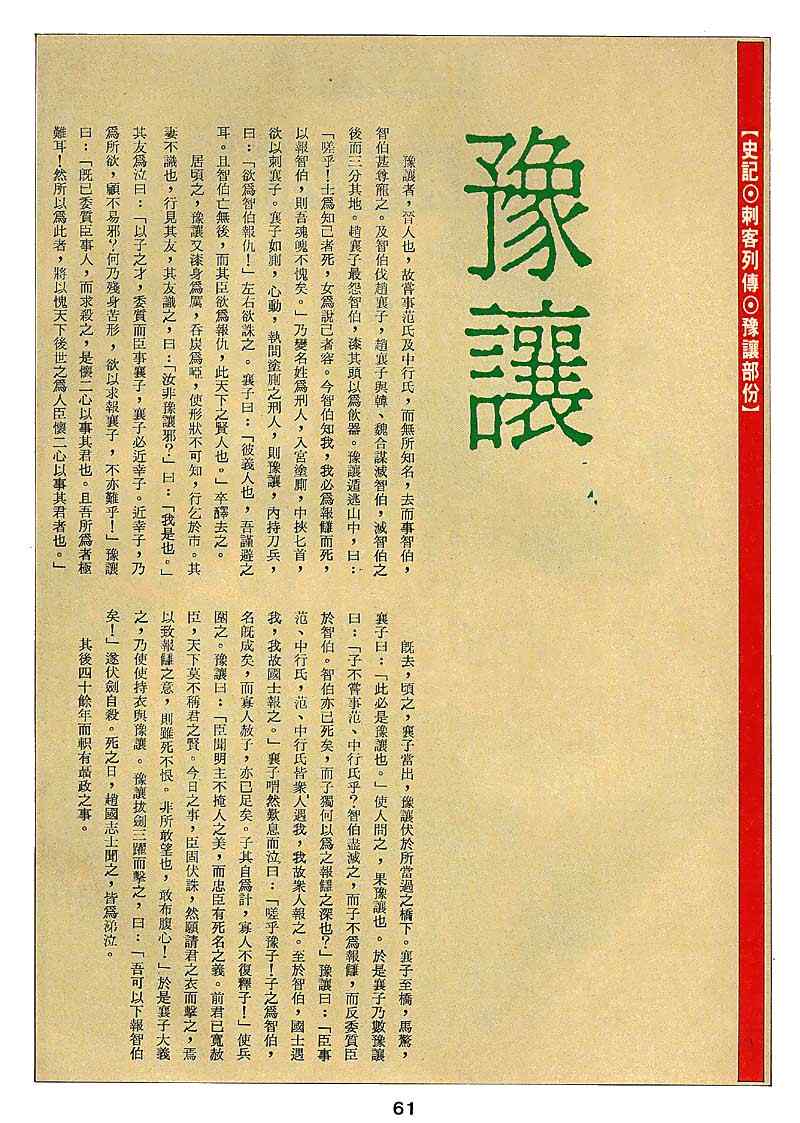 【史記⊙刺客列傳⊙豫讓部份】
豫讓
豫讓者，晉人也，故嘗事范氏及中行氏，而無所知名，去而事智伯，
智伯甚尊寵之。及智伯伐趙襄子，趙襄子與韓、魏合謀滅智伯，滅智伯之
後而三分其地。趙襄子最怨智伯，漆其頭以為飲器。豫讓遁逃山中，曰：
「嗟乎！士爲知己者死，女爲說己者容。今智伯知我，我必爲報讎而死，
以報智伯，則吾魂魄不愧矣。」乃變名姓爲刑人，入宮塗厠，中挾匕首，
欲以刺襄子。襄子如厠，心動，執問塗厠之刑人，則豫讓，內持刀兵，
曰：「欲爲智伯報仇！」左右欲誅之。襄子曰：「彼義人也，吾謹避之
耳。且智伯亡無後，而其臣欲爲報仇，此天下之賢人也。」卒醳去之。
居頃之，豫讓又漆身爲厲，吞炭爲啞，使形狀不可知，行乞於市。其
妻不識也，行見其友，其友識之，曰：「汝非豫讓邪？」曰：「我是也。」
其友爲泣曰：「以子之才，委質而臣事襄子，襄子必近幸子。近幸子，乃
爲所欲，顧不易邪？何乃殘身苦形，欲以求報襄子，不亦難乎！」豫讓
曰：「旣已委質臣事人，而求殺之，是懷二心以事其君也。且吾所爲者極
難耳！然所以爲此者，將以愧天下後世之爲人臣懷二心以事其君者也。」
旣去，頃之，襄子當出，豫讓伏於所當過之橋下。襄子至橋，馬驚，
襄子曰：「此必是豫讓也。」使人問之，果豫讓也。於是襄子乃數豫讓
曰：「子不嘗事范、中行氏乎？智伯盡滅之，而子不爲報讎，而反委質臣
於智伯。智伯亦已死矣，而子獨何以爲之報讎之深也？」豫讓曰：「臣事
范、中行氏，范、中行氏皆衆人遇我，我故衆人報之。至於智伯，國士遇
我，我故國士報之。」襄子喟然歎息而泣曰：「嗟乎豫子！子之爲智伯，
名旣成矣，而寡人赦子，亦已足矣。子其自爲計，寡人不復釋子！」使兵
圍之。豫讓曰：「臣聞明主不掩人之美，而忠臣有死名之義。前君已寬赦
臣，天下莫不稱君之賢。今日之事，臣固伏誅，然願請君之衣而擊之，焉
以致報讎之意，則雖死不恨。非所敢望也，敢布腹心！」於是襄子大義
之，乃使使持衣與豫讓。豫讓拔劍三躍而擊之，曰：「吾可以下報智伯
矣！」遂伏劍自殺。死之日，趙國志士聞之，皆爲涕泣。
其後四十餘年而軹有聶政之事。
61